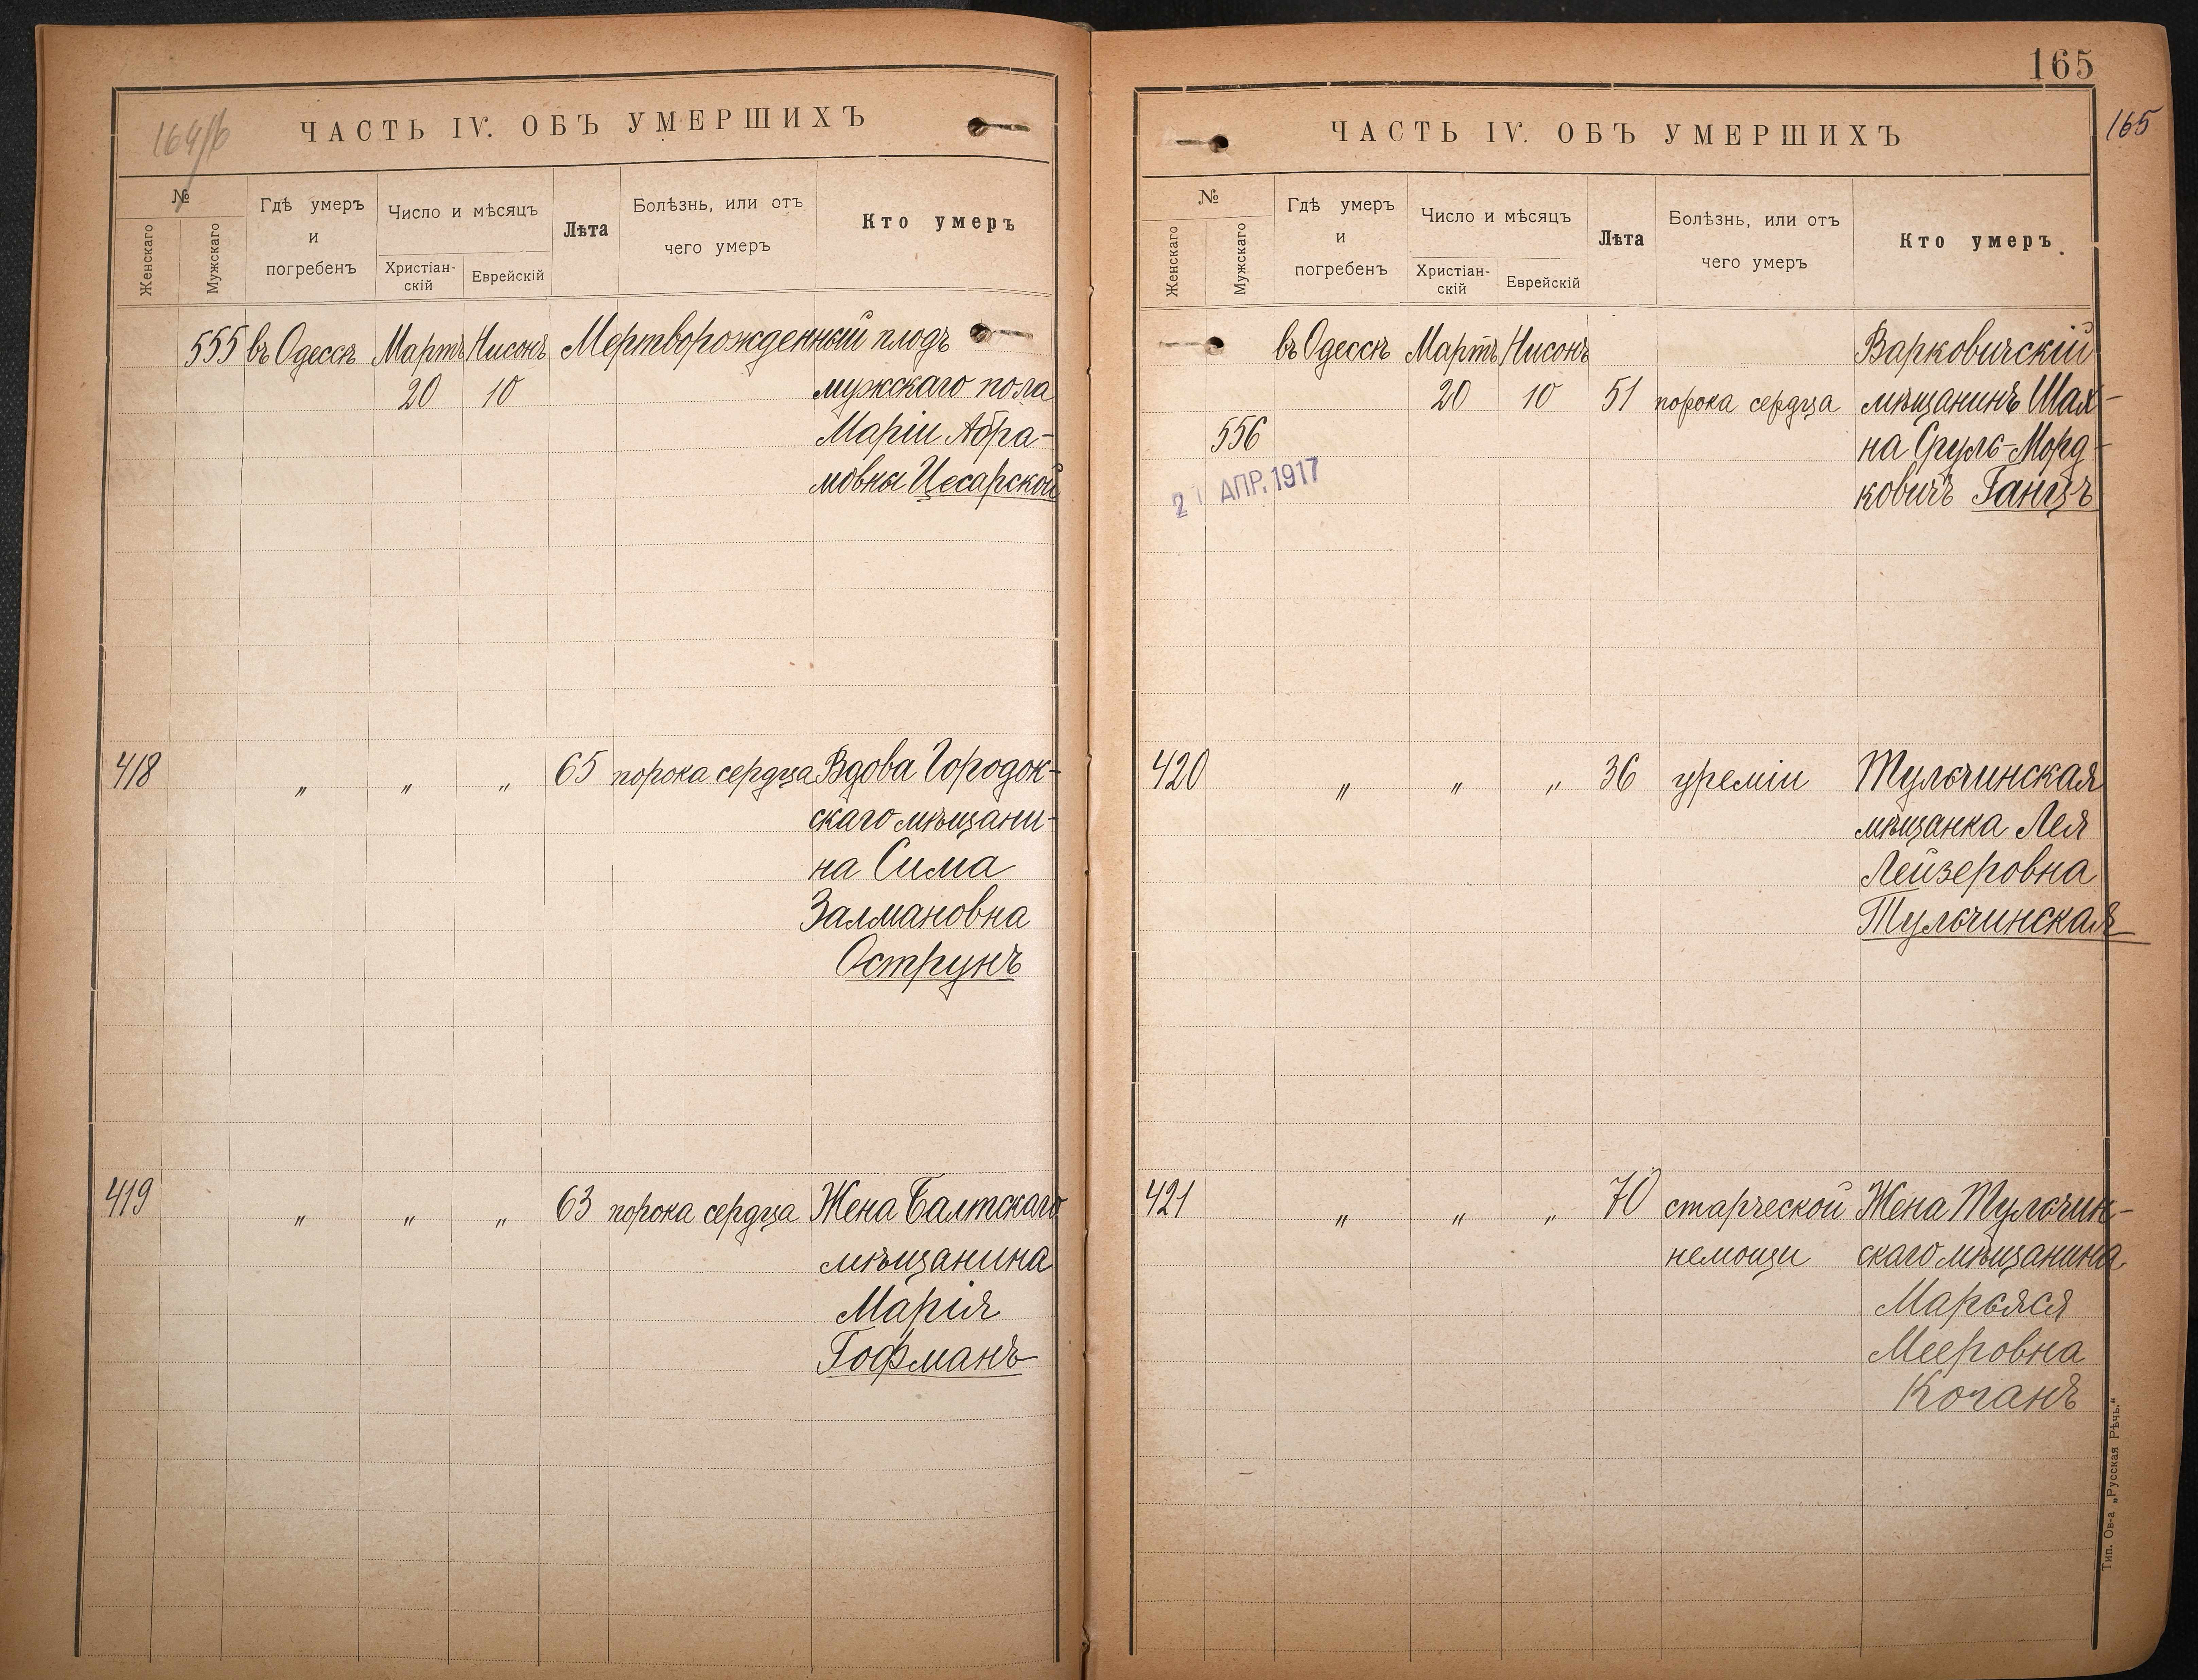 164/б
ЧАСТЬ IV. ОБЪ УМЕРШИХЪ
№
Женскаго
Мужскаго
Гдѣ умеръ
и
погребенъ
Число и мѣсяцъ
Христіан-
скій
Еврейскій
Лѣта
Болѣзнь, или отъ
чего умеръ
Кто умеръ
555 въ Одессѣ Мартъ Нисонъ Мертворожденный плодъ
20 10 мужскаго пола
Маріи Абра-
мовны Цесарской
418 „ „ „ 65 порока сердца Вдова Городок-
скаго мѣщани-
на Сима
Залмановна
Острунъ
419 „ „ „ 63 порока сердца Жена Балтскаго
мѣщанина
Марія
Гофманъ
165
165
ЧАСТЬ IV. ОБЪ УМЕРШИХЪ
№
Женскаго
Мужскаго
Гдѣ умеръ
и
погребенъ
Число и мѣсяцъ
Христіан-
скій
Еврейскій
Лѣта
Болѣзнь, или отъ
чего умеръ
Кто умеръ
въ Одессѣ Мартъ Нисонъ Варковичскій
20 10 51 порока сердца мѣщанинъ Шах-
556 на Сруль-Морд-
ковичъ Ганцъ
2 АПР. 1917
420 „ „ „ 36 уреміи Тульчинская
мѣщанка Лея
Лейзеровна
Тульчинская
421 „ „ „ 70 старческой Жена Тульчин-
немощи скаго мѣщанина
Марьяся
Мееровна
Коганъ
Тип. Ов-а „Русская Рѣчь.“